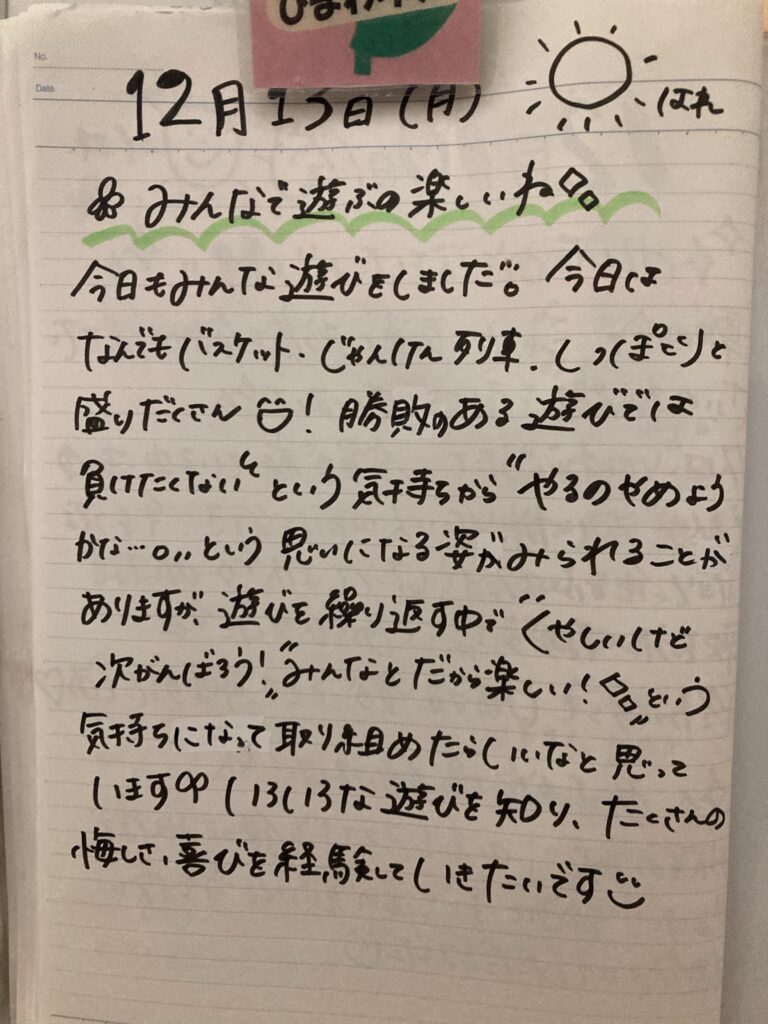 No.
Date
12月13日(月) はれ
みんなで遊ぶの楽しいね
今日もみんな遊びをしました。今日は
なんでもバスケット・じゃんけん列車・しっぽとりと
盛りだくさん!勝敗のある遊びでは
負けたくない"という気持ちから"やるのやめよう
かな…。"という思いになる姿がみられることが
ありますが、遊びを繰り返す中で"くやしいけど
次がんばろう!""みんなとだから楽しい!"という
気持ちになって取り組めたらいいなと思って
います いろいろな遊びを知り、たくさんの
悔しさ、喜びを経験していきたいです